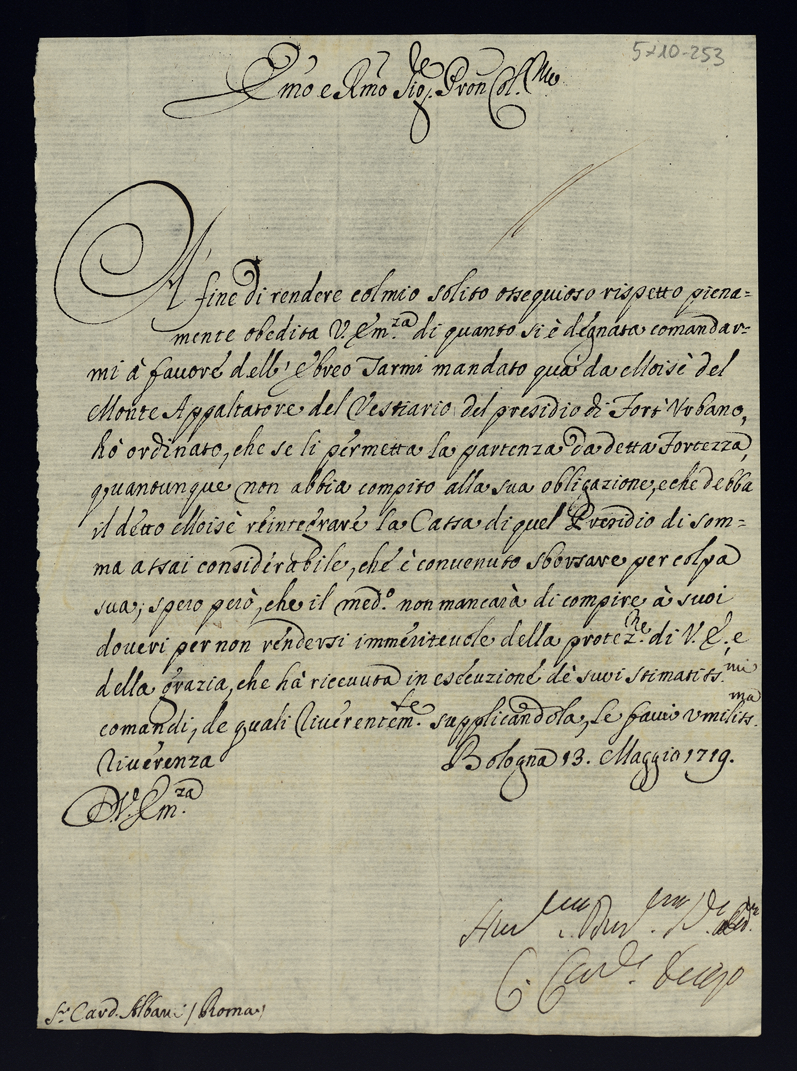 5710-253
Emo e Rmo Sig.re Pron Col.mo
A' fine di rendere col mio solito ossequioso rispetto piena=
mente obedita V. Em.za di quanto si è degnata comandar=
mi à favore dell' Ebreo Jarmi mandato quà da Moisè del
Monte Appaltatore del Vestiario del presidio di Fort' Urbano,
hò ordinato, che se li permetta la partenza da detta Fortezza,
quantunque non abbia compito alla sua obligazione, e che debba
il detto Moisè reintegrare la Cassa di quel Presidio di som=
ma assai considerabile, che è convenuto sborsare per colpa
sua; spero però, che il med.o non mancarà di compire à suoi
doveri per non rendersi immeritevole della protez.ne di V. E., e
della grazia, che hà riceuuta in esecuzione de suoi stimatiss.mi
comandi, de quali riverentem.te supplicandola, le faccio umiliss.ma
riverenza
Bologna 13. Maggio 1719.
D. V. Em.za
C. Card.
Sr. Card. Albani / Roma /